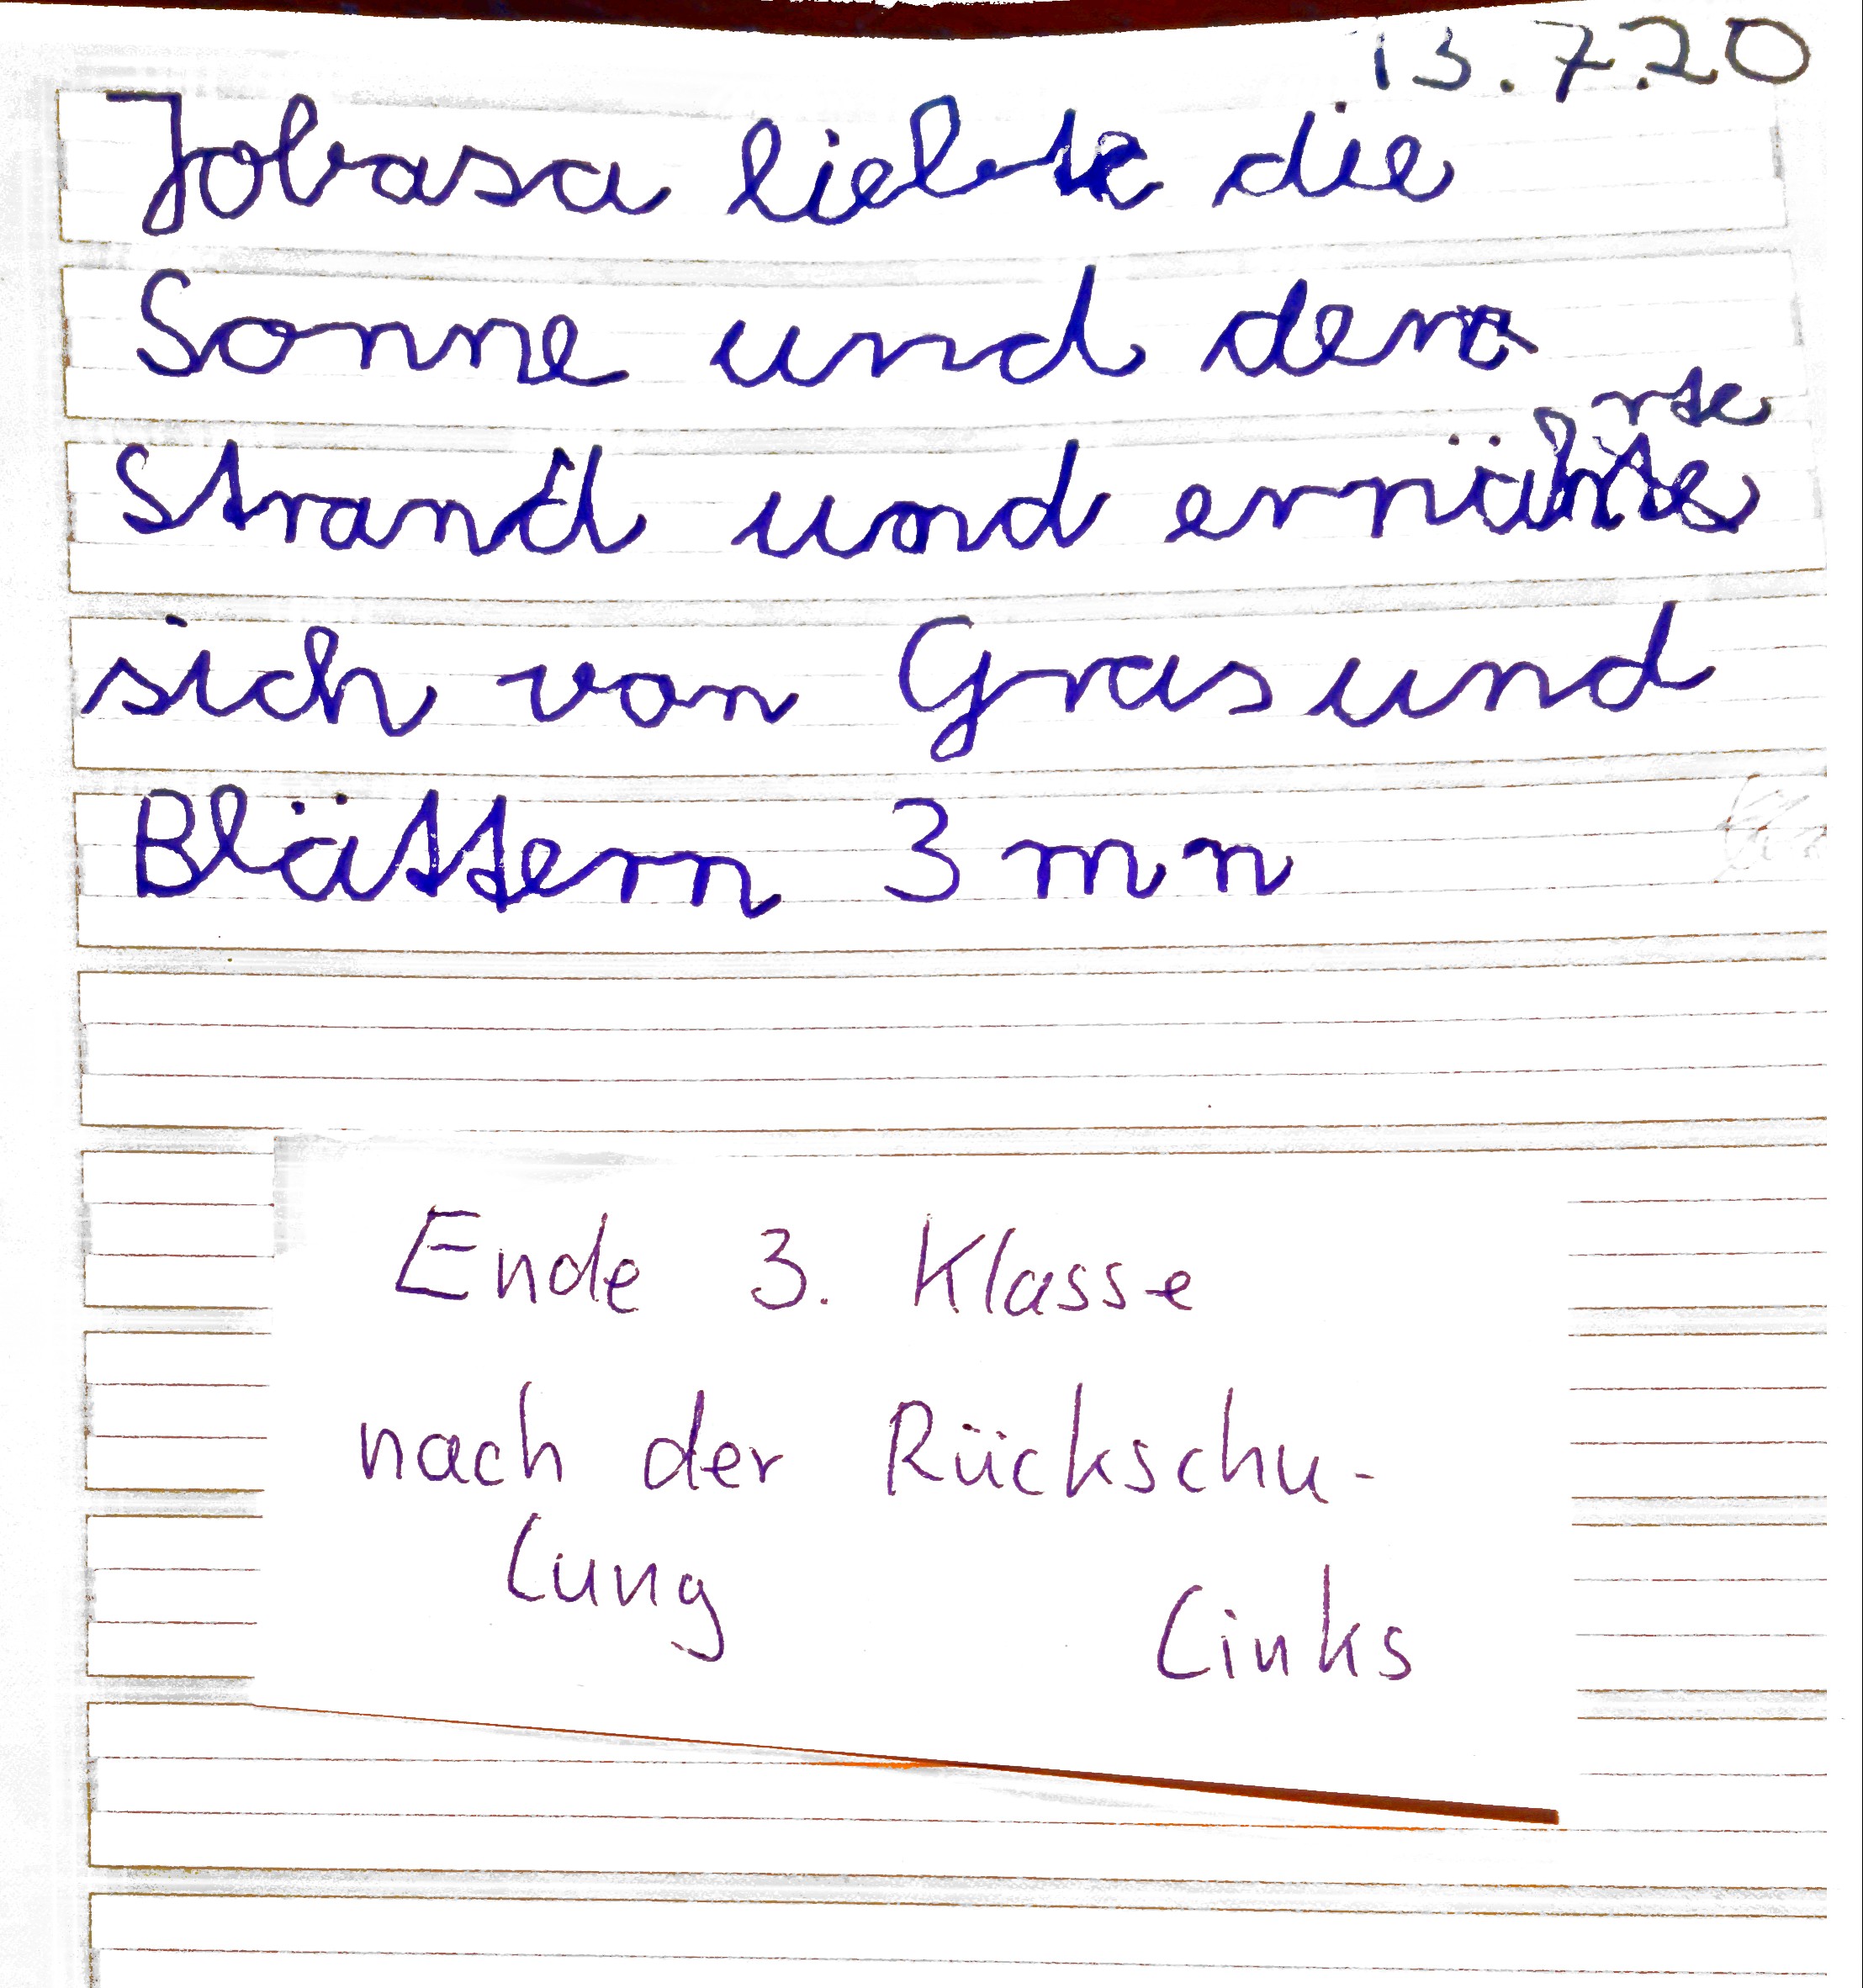 13.7.20
Jobasa liebte die
Sonne und den
rte
Strand und ernährte
sich von Gras und
Blättern 3 mn
Ende 3. Klasse
nach der Rückschu-
lung
Links